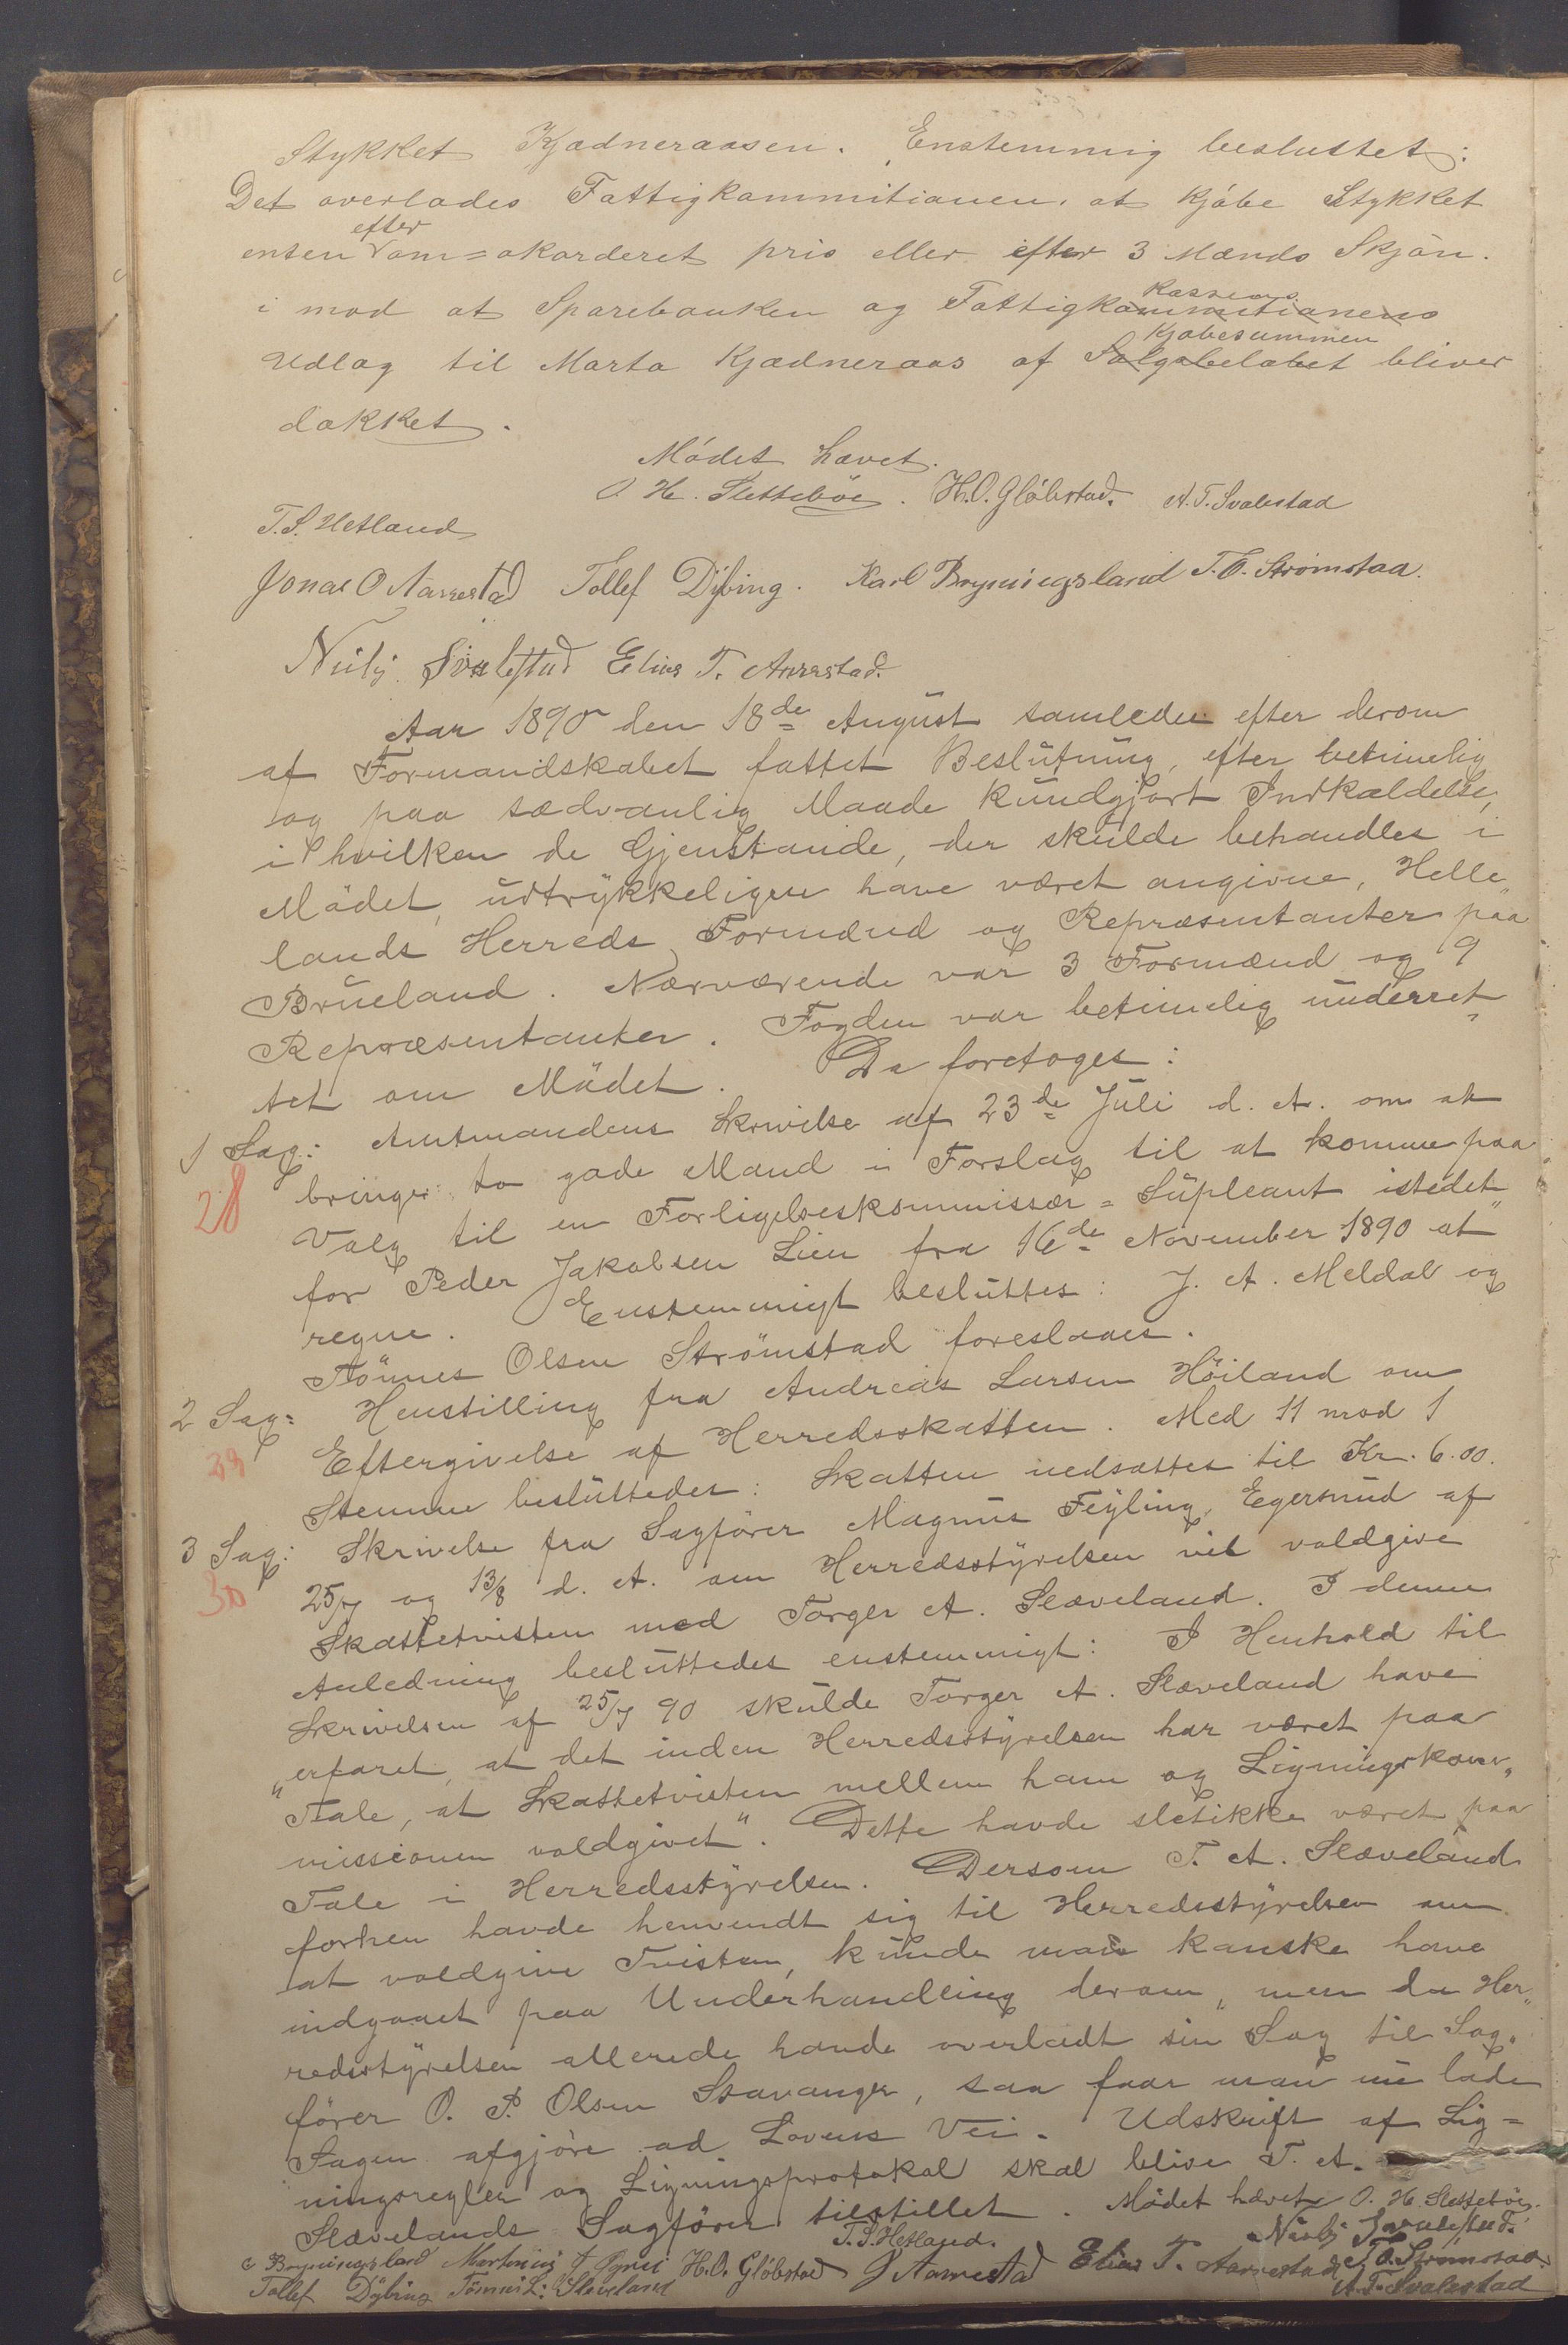 Stykket Kjædneraasen. Enstemmig besluttet:
Det overlades Fattigkommitionen at kjøbe Stykket
efter
enten om=akorderet pris eller efter 3 Mænds Skjøn.
kassens
i mod at Sparebanken og Fattigkommitionens
Kjøbesummen
Udlæg til Marta Kjædneraas af Salgsbeløbet bliver
dækket.
Mødet hævet.
O. H. Slettebøe. H. O. Gløbstad. A. T. Svalestad
T. S. Hetland
Jonas O Aarrestad Tollef Dybing. Karl Bryningsland T. O. Strømstad.
Svalestad Elias T. Aarrestad.
Aar 1890 den 18de August samledes efter derom
af Formandskabet fattet Beslutning, efter betimelig
og paa sædvanlig Maade kundgjort Indkaldelse,
i hvilken de Gjenstande, der skulde behandles i
Mødet, udtrykkeligen have været angivne, Helle„
lands Herreds Formænd og Repræsentanter paa
Brueland. Nærværende var 3 Formænd og 9
Repræsentanter. Fogden var betimelig underret„
tet om Mødet. Da foretoges:
1 Sag: Amtmandens Skrivelse af 23de Juli d. A. om at
bringe to gode Mænd i Forslag til at komme paa
28
Valg til en Forligelseskommissær=Supleant istedet„
for Peder Jakobsen Lien fra 16de November 1890 at
regne. Enstemmigt besluttes: J. A. Meldal og
Tönnes Olsen Strömstad foreslaaes.
2 Sag: Henstilling fra Andreas Larsen Höiland om
Eftergivelse af Herredsskatten. Med 11 mod 1
29
Stemme besluttedes: Skatten nedsættes til Kr. 6.00.
3 Sag: Skrivelse fra Sagförer Magnus Feyling, Egersund af
25/7 og 13/8 d. A. om Herredsstyrelsen vil voldgive
30
Skattetvisten med Torger A. Slæveland. I denne
Anledning besluttedes enstemmigt: I Henhold til
Skrivelsen af 25/7 90 skulde Torger A. Slæveland have
„erfaret, at det inden Herredsstyrelsen har været paa
Tale, at Skattetvisten mellem ham og Ligningskom„
missionen voldgivet". Dette havde sletikke været paa
Tale i Herredsstyrelsen. Dersom T. A. Slæveland
forhen havde henvendt sig til Herredsstyrelsen om
at voldgive Tvisten, kunde man kanske have
indgaaet paa Underhandling derom, men da Her„
redsstyrelsen allerede havde overladt sin Sag til Sag„
förer O. P. Olsen Stavanger, saa faar man nu lade
Sagen afgjöre ad Lovens Vei. Udskrift af Lig=
ningsregler og Ligningsprotokol skal blive T. A.
Slævelands Sagförer tilstillet. Mödet hævet O. H. Slettebøe.
T. S. Hetland. Svalestad.
Bryningsland H. O. Gløbstad J Aarrestad Elias T. Aarrestad T. O. Strømstad
Tollef Dybing Tönnes L. Slæveland A. T. Svalestad